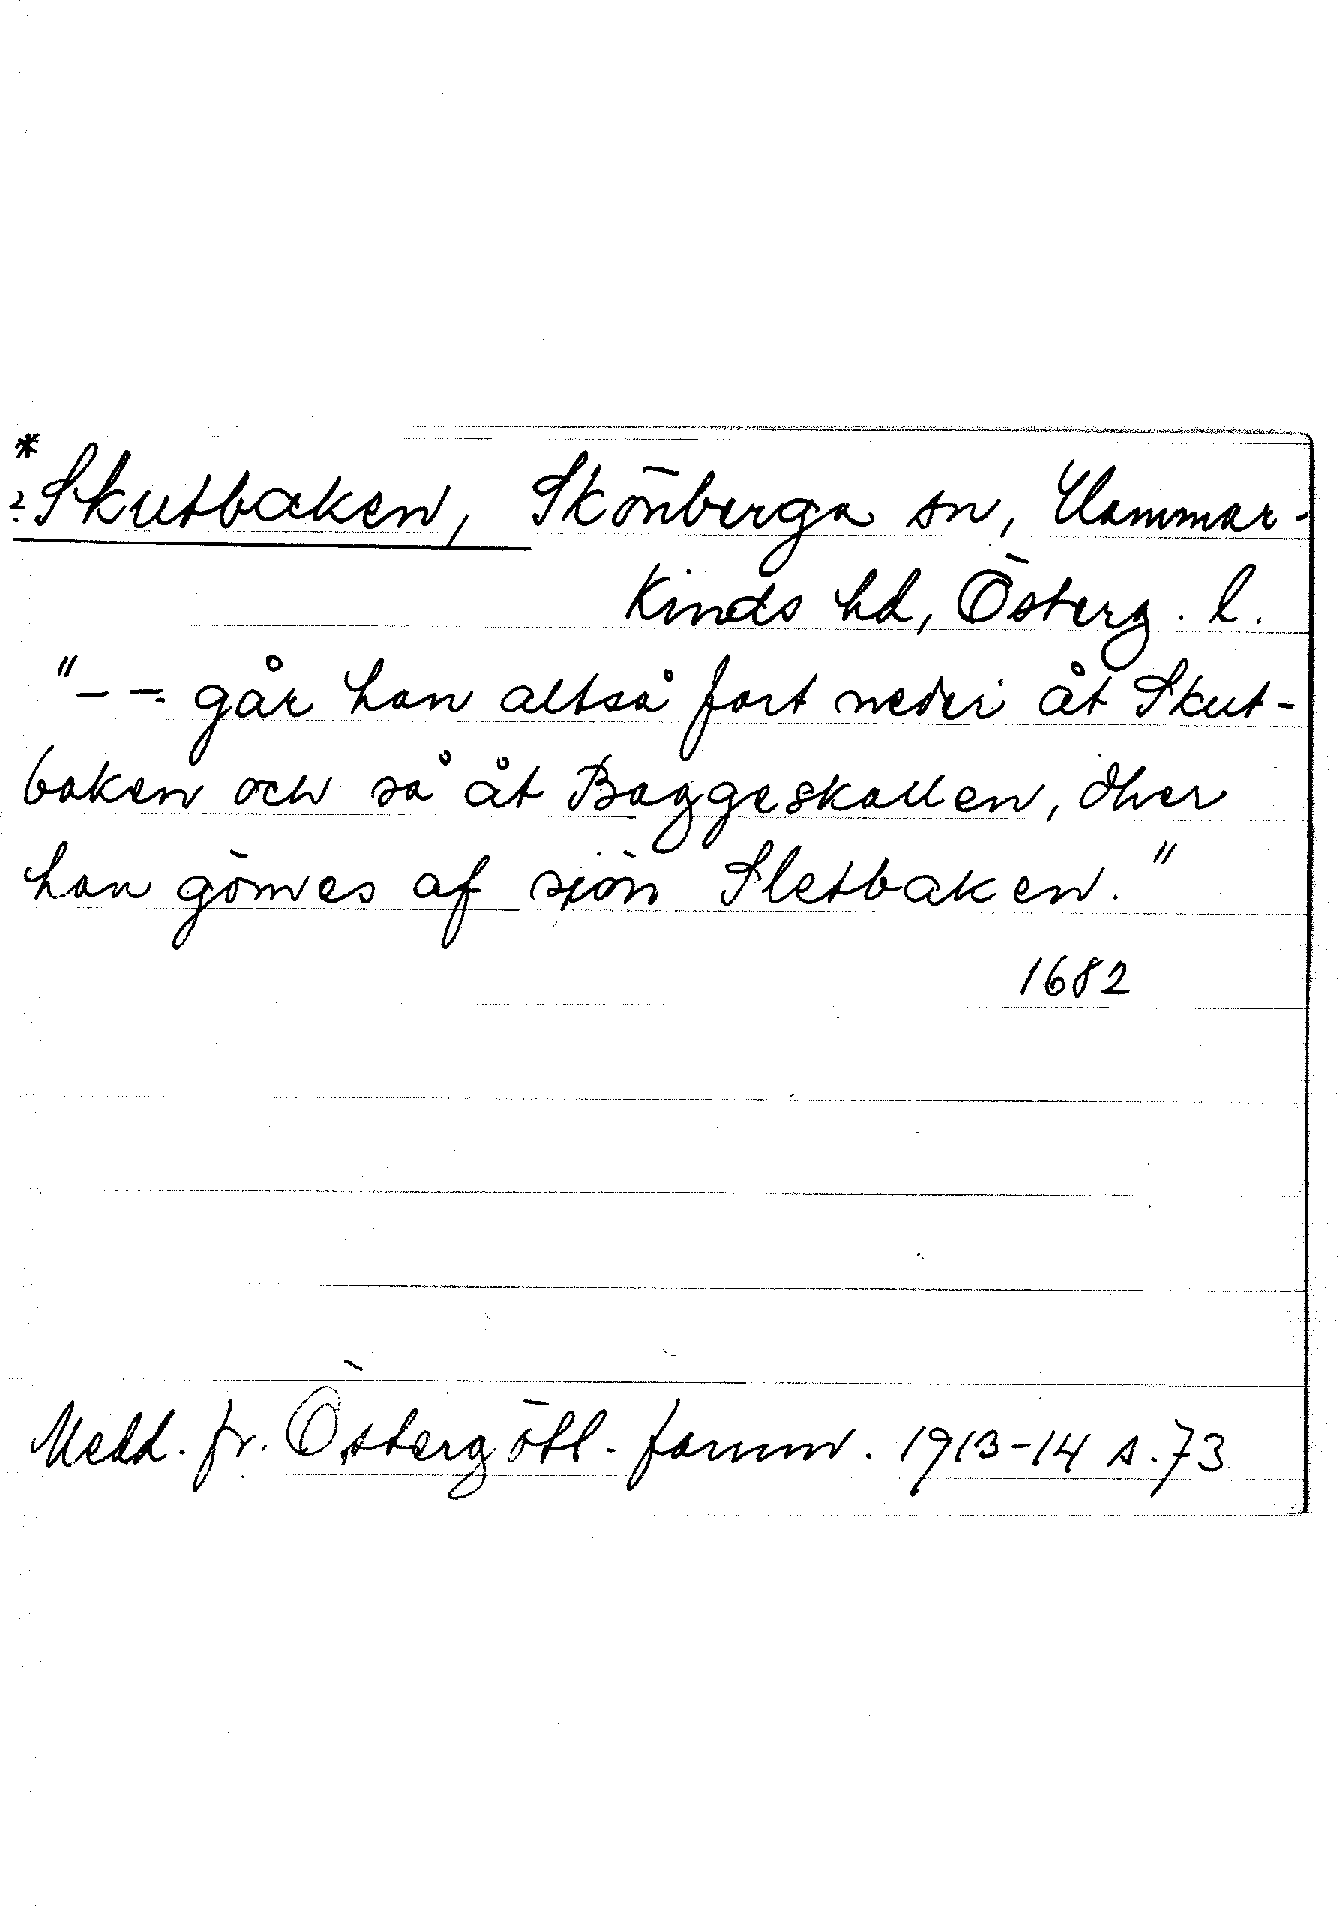 *
? Skutbaken, Skönberga sn, Hammar-
kinds hd, Österg. l.
"- - - går han altså fort neder åt Skut-
baken och så åt Baggeskallen, dher
han gömes af sjön Sletbaken."
1682
Medd. fr. Östergötl. fornm. 1913-14 s. 73